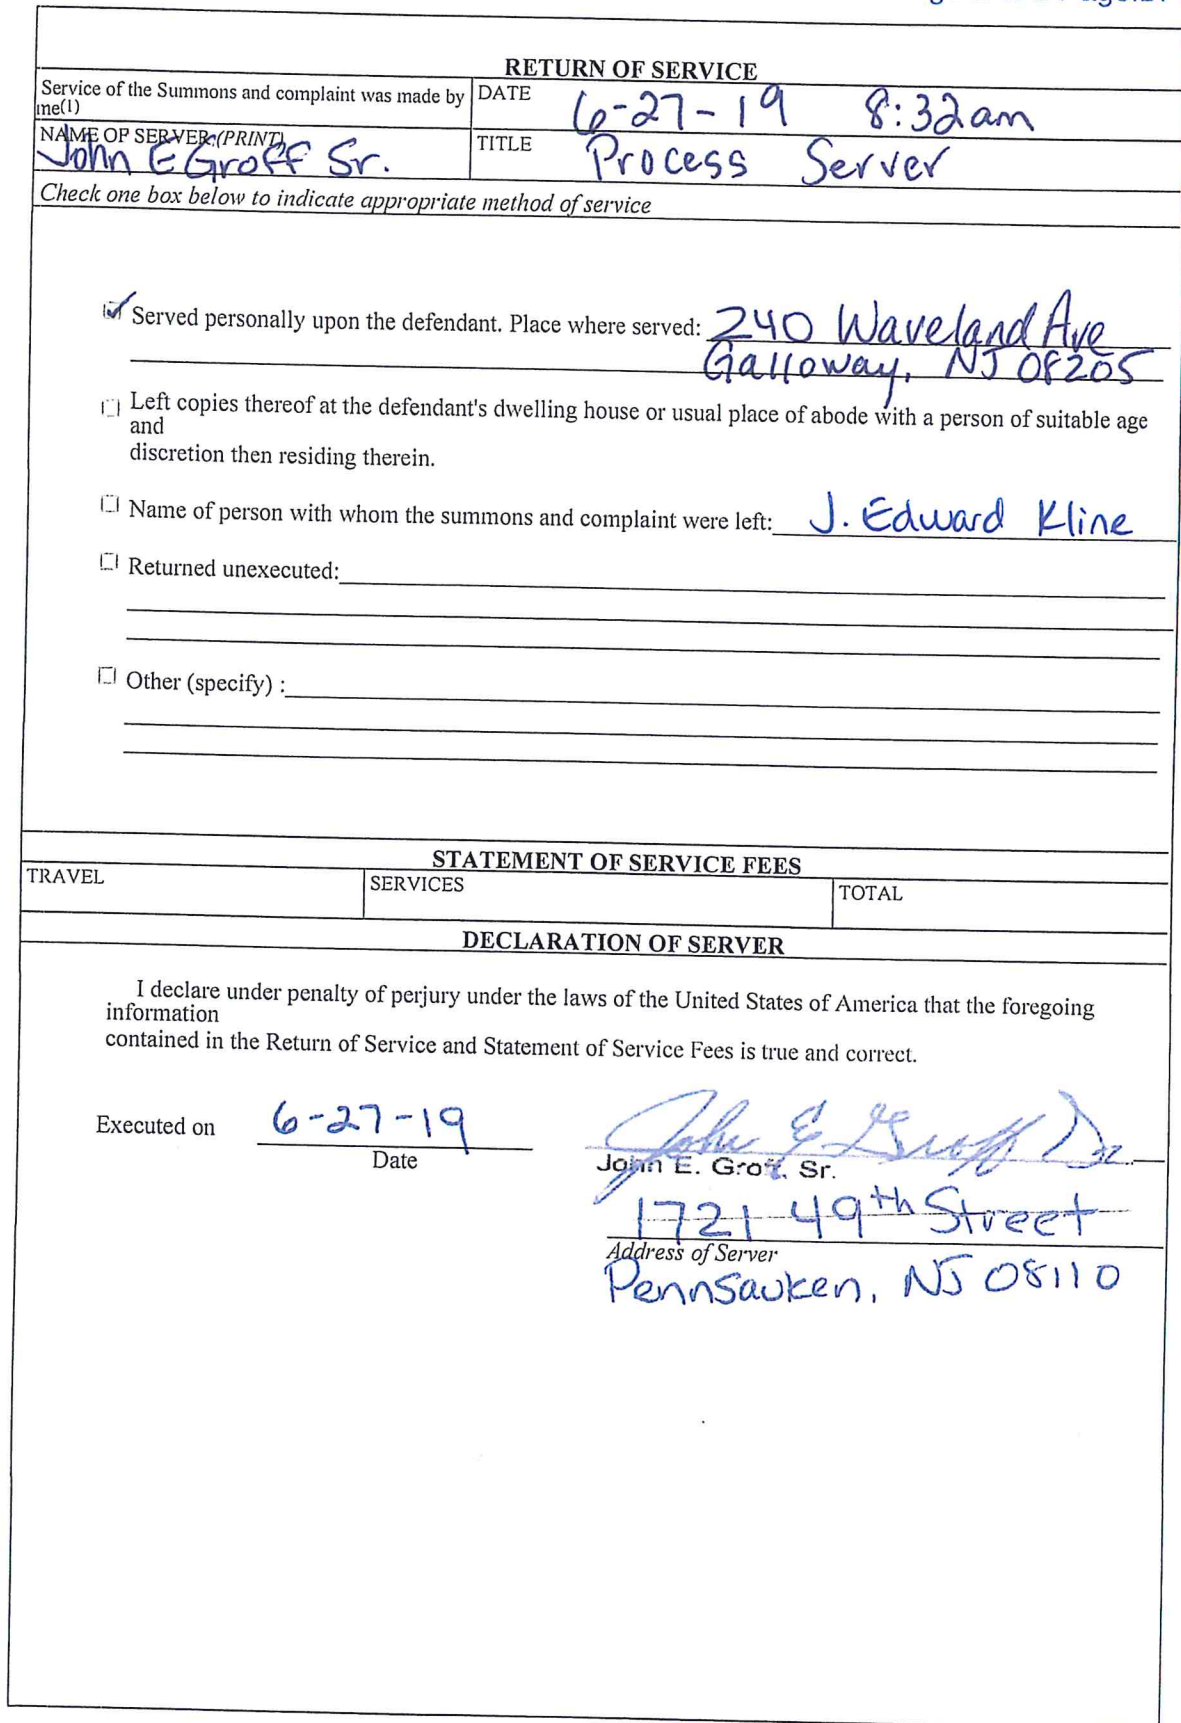 RETURN OF SERVICE
Service of the Summons and complaint was made by
me(1)
DATE 6-27-19 8:32am
NAME OF SERVER (PRINT)
John E Groff Sr.
TITLE Process Server
Check one box below to indicate appropriate method of service
☑ Served personally upon the defendant. Place where served: 240 Waveland Ave
Galloway, NJ 08205
☐ Left copies thereof at the defendant's dwelling house or usual place of abode with a person of suitable age
and
discretion then residing therein.
☐ Name of person with whom the summons and complaint were left: J. Edward Kline
☐ Returned unexecuted:
☐ Other (specify) :
STATEMENT OF SERVICE FEES
TRAVEL SERVICES TOTAL
DECLARATION OF SERVER
I declare under penalty of perjury under the laws of the United States of America that the foregoing
information
contained in the Return of Service and Statement of Service Fees is true and correct.
Executed on 6-27-19 John E Groff Sr.
Date
John E. Groff, Sr.
1721 49th Street
Address of Server
Pennsauken, NJ 08110